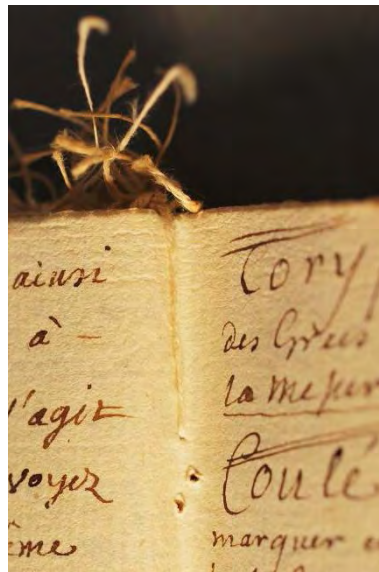 ainsi
à –
'agit
voyez
ême
Cory
des Grecs
la mesur
Coulé
marquer